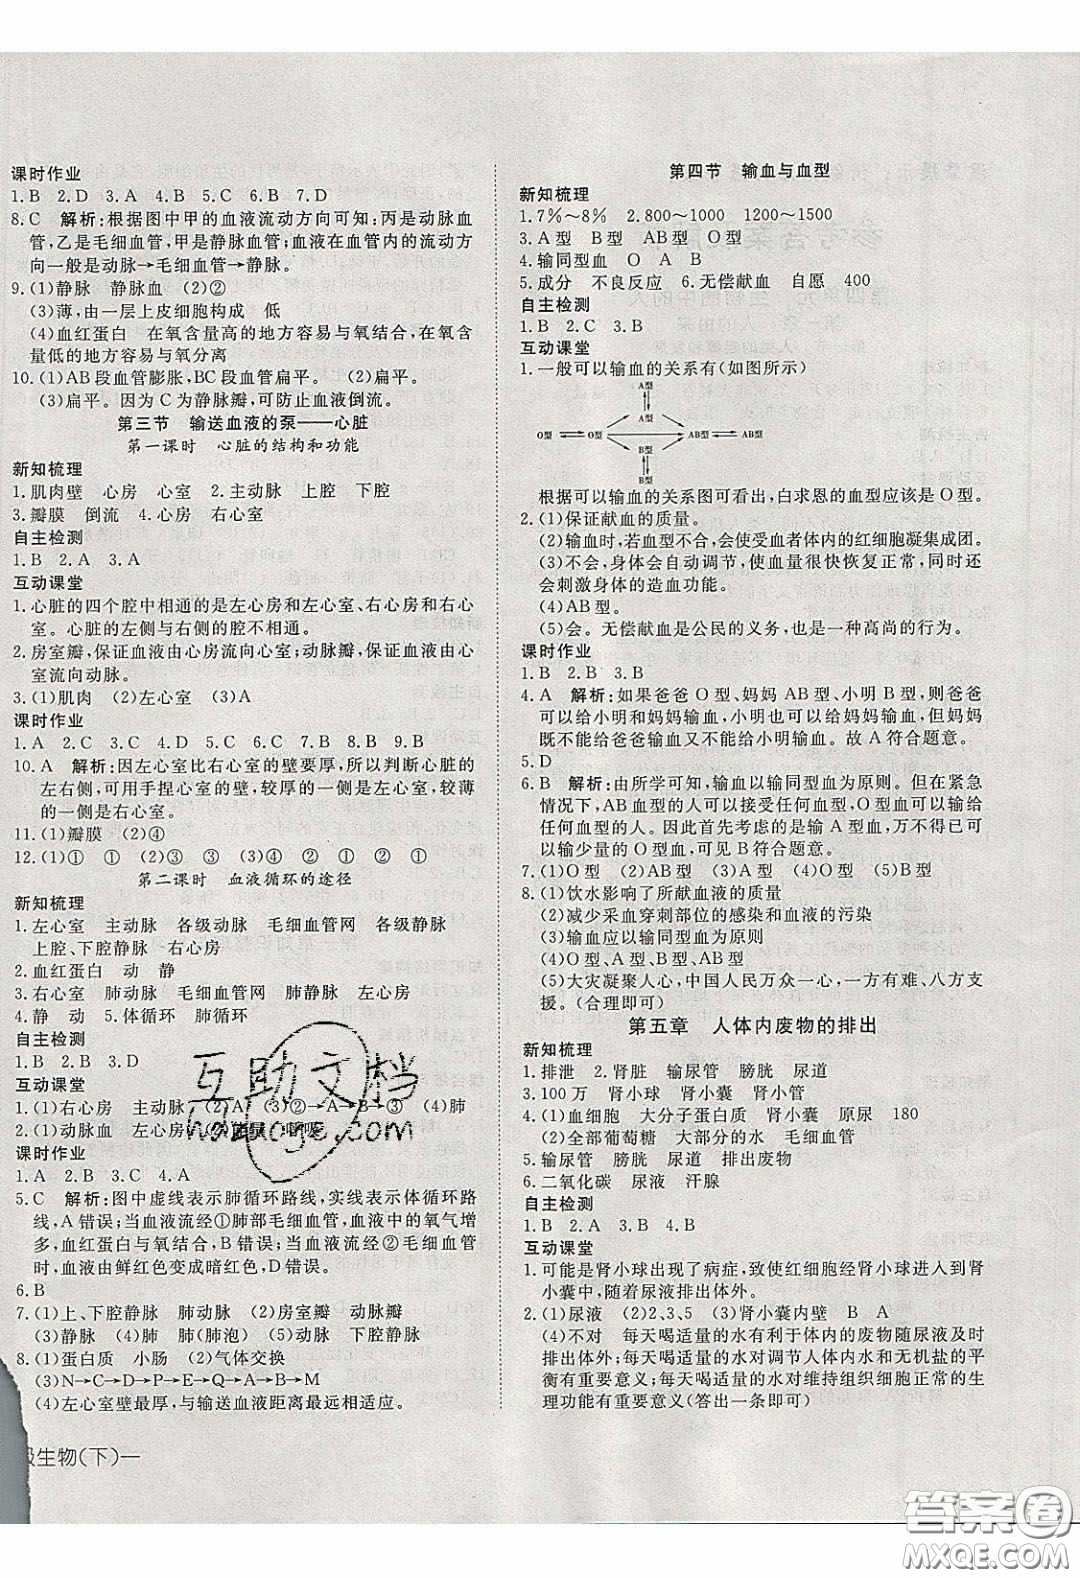 课时作业
1.B 2.D 3.A 4.B 5.C 6.B 7.D
8.C 解析:根据图中甲的血液流动方向可知:丙是动脉血
管,乙是毛细血管,甲是静脉血管;血液在血管内的流动方
向一般是动脉→毛细血管→静脉。
9.(1)静脉 静脉血 (2)②
(3)薄,由一层上皮细胞构成 低
(4)血红蛋白 在氧含量高的地方容易与氧结合,在氧含
量低的地方容易与氧分离
10.(1)AB段血管膨胀,BC段血管扁平。 (2)扁平。
(3)扁平。因为C为静脉瓣,可防止血液倒流。
第三节 输送血液的泵——心脏
第一课时 心脏的结构和功能
新知梳理
1.肌肉壁 心房 心室 2.主动脉 上腔 下腔
3.瓣膜 倒流 4.心房 右心室
自主检测
1.B 2.A 3.A
互动课堂
1.心脏的四个腔中相通的是左心房和左心室、右心房和右心
室。心脏的左侧与右侧的腔不相通。
2.房室瓣,保证血液由心房流向心室;动脉瓣,保证血液由心
室流向动脉。
3.(1)肌肉 (2)左心室 (3)A
课时作业
1.A 2.C 3.C 4.D 5.C 6.C 7.B 8.B 9.B
10.A 解析:因左心室比右心室的壁要厚,所以判断心脏的
左右侧,可用手捏心室的壁,较厚的一侧是左心室,较薄
的一侧是右心室。
11.(1)瓣膜 (2)④
12.(1)① ① (2)③ ③ ④ ① ② ①
第二课时 血液循环的途径
新知梳理
1.左心室 主动脉 各级动脉 毛细血管网 各级静脉
上腔、下腔静脉 右心房
2.血红蛋白 动 静
3.右心室 肺动脉 毛细血管网 肺静脉 左心房
4.静 动 5.体循环 肺循环
自主检测
1.B 2.B 3.D
互动课堂
1.(1)右心房 主动脉 (2)A (3)②→A→B→③ (4)肺
2.(1)动脉血 左心房
课时作业
1.A 2.B 3.C 4.A
5.C 解析:图中虚线表示肺循环路线,实线表示体循环路
线,A错误;当血液流经①肺部毛细血管,血液中的氧气增
多,血红蛋白与氧结合,B错误;当血液流经②毛细血管
时,血液由鲜红色变成暗红色,D错误。
6.B
7.(1)上、下腔静脉 肺动脉 (2)房室瓣 动脉瓣
(3)静脉 (4)肺 肺(肺泡) (5)动脉 下腔静脉
8.(1)蛋白质 小肠 (2)气体交换
(3)N→C→D→P→E→Q→A→B→M
(4)左心室壁最厚,与输送血液距离最远相适应。
级生物(下)—
第四节 输血与血型
新知梳理
1.7%～8% 2.800～1000 1200～1500
3.A型 B型 AB型 O型
4.输同型血 O A B
5.成分 不良反应 6.无偿献血 自愿 400
自主检测
1.B 2.C 3.B
互动课堂
1.一般可以输血的关系有(如图所示)
A型
A型
O型 O型 AB型 AB型
B型
B型
根据可以输血的关系图可看出,白求恩的血型应该是O型。
2.(1)保证献血的质量。
(2)输血时,若血型不合,会使受血者体内的红细胞凝集成团。
(3)不会,身体会自动调节,使血量很快恢复正常,同时还
会刺激身体的造血功能。
(4)AB型。
(5)会。无偿献血是公民的义务,也是一种高尚的行为。
课时作业
1.B 2.B 3.B
4.A 解析:如果爸爸O型、妈妈AB型、小明B型,则爸爸
可以给小明和妈妈输血,小明也可以给妈妈输血,但妈妈
既不能给爸爸输血又不能给小明输血。故A符合题意。
5.D
6.B 解析:由所学可知,输血以输同型血为原则。但在紧急
情况下,AB血型的人可以接受任何血型,O型血可以输给
任何血型的人。因此首先考虑的是输A型血,万不得已才
可以输少量的O型血,可见B符合题意。
7.(1)O型 (2)A型 (3)A型 (4)O型 (5)B型
8.(1)饮水影响了所献血液的质量
(2)减少采血穿刺部位的感染和血液的污染
(3)输血应以输同型血为原则
(4)O型、A型、B型、AB型
(5)大灾凝聚人心,中国人民万众一心,一方有难、八方支
援。(合理即可)
第五章 人体内废物的排出
新知梳理
1.排泄 2.肾脏 输尿管 膀胱 尿道
3.100万 肾小球 肾小囊 肾小管
4.(1)血细胞 大分子蛋白质 肾小囊 原尿 180
(2)全部葡萄糖 大部分的水 毛细血管
5.输尿管 膀胱 尿道 排出废物
6.二氧化碳 尿液 汗腺
自主检测
1.B 2.A 3.B 4.B
互动课堂
1.可能是肾小球出现了病症,致使红细胞经肾小球进入肾
小囊中,随着尿液排出体外。
2.(1)尿液 (2)2、3、5 (3)肾小囊内壁 B A
(4)不对 每天喝适量的水有利于体内的废物随尿液及时
排出体外;每天喝适量的水对调节人体内水和无机盐的平
衡有重要意义;每天喝适量的水对维持组织细胞正常的生
理功能有重要意义(答出一条即可)
互助文档
hzdaoge.com
答案圈
MXQE.COM